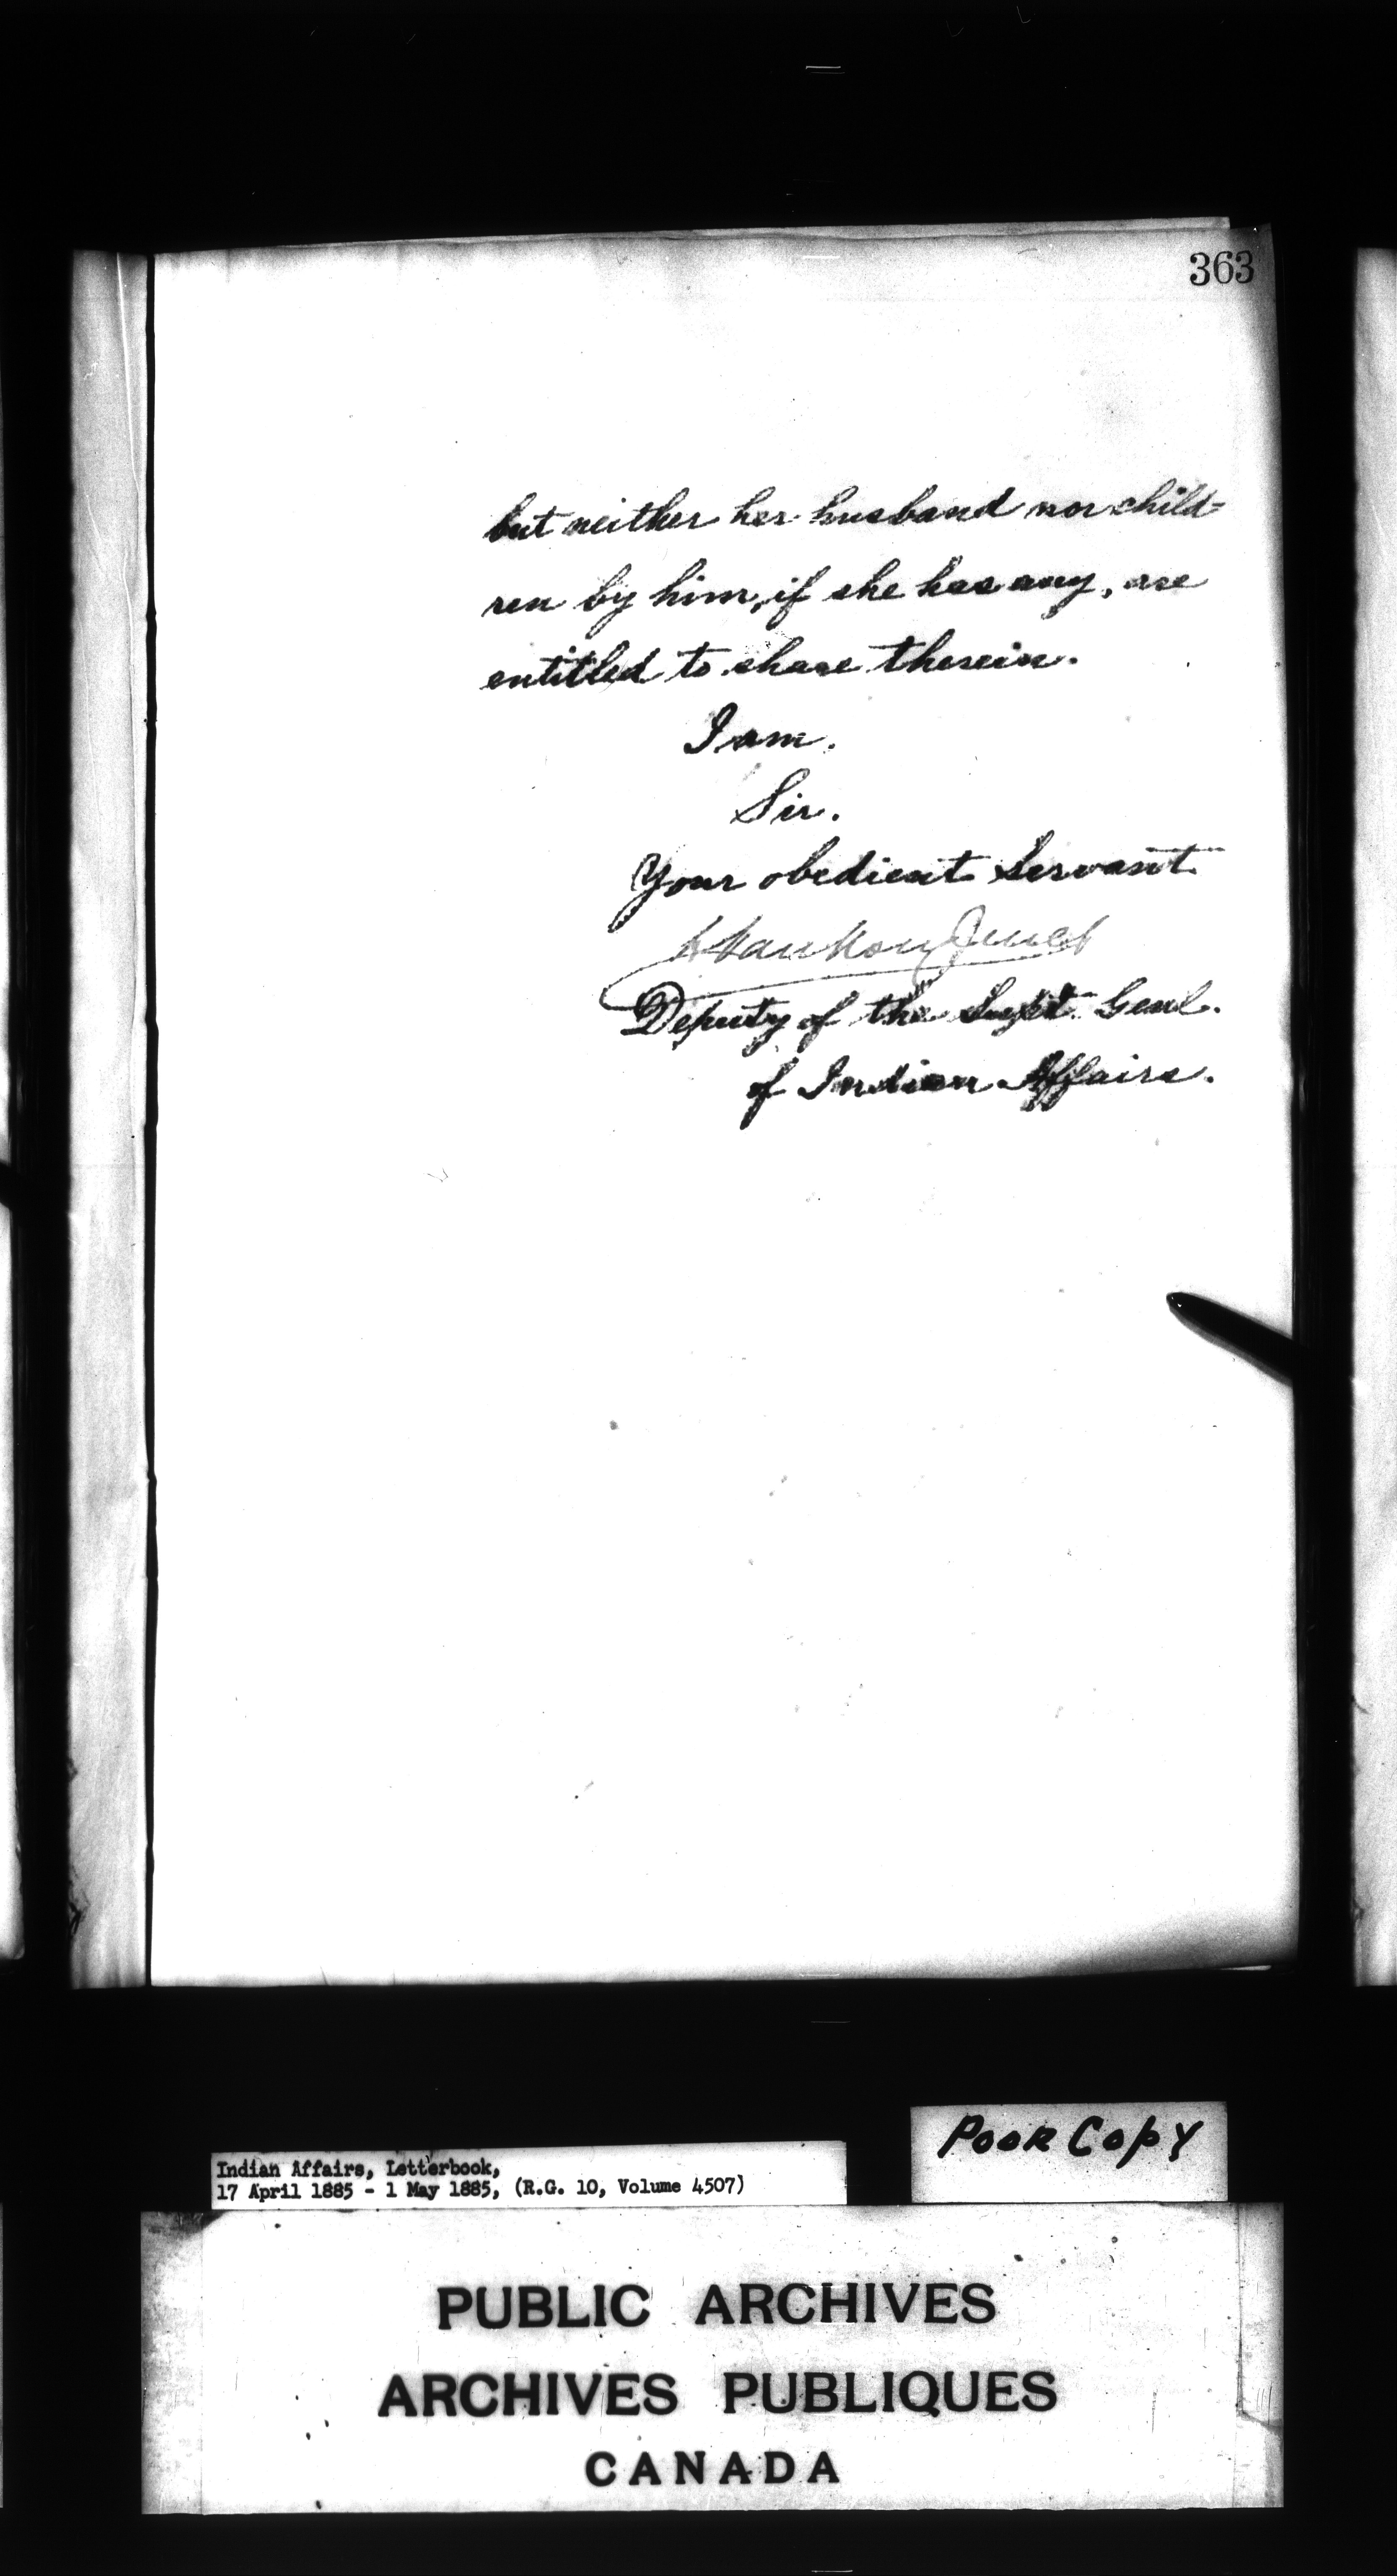 363
but neither her husband nor child=
ren by him, if she has any, are
entitled to share therein.
I am.
Sir.
Your obedient Servant
L VanKoughnet
Deputy of the Supt. Genl.
of Indian Affairs.
Poor Copy
Indian Affairs, Letterbook,
17 April 1885 - 1 May 1885, (R.G. 10, Volume 4507)
PUBLIC ARCHIVES
ARCHIVES PUBLIQUES
CANADA